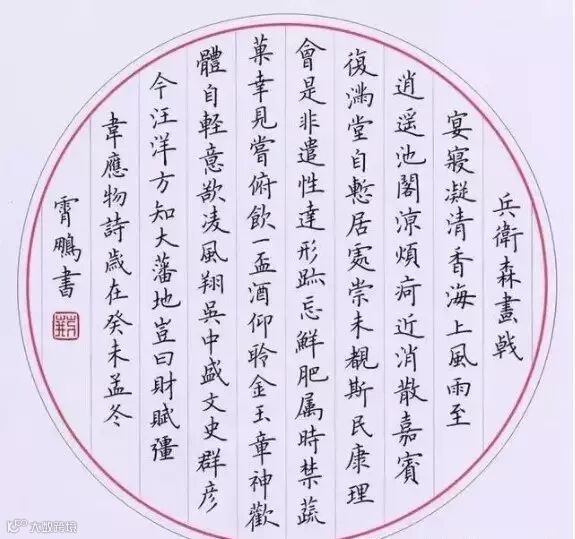 兵衛森畫戟
宴寢凝清香海上風雨至
逍遥池閣涼煩疴近消散嘉賓
復滿堂自慙居處崇未覩斯民康理
會是非遣性達形跡忘鮮肥属時禁蔬
菓幸見嘗俯飲一盃酒仰聆金玉章神歡
體自軽意欲凌風翔吳中盛文史群彦
今汪洋方知大藩地豈曰財賦彊
韋應物詩歲在癸未孟冬
霄鵬書
大数跨境